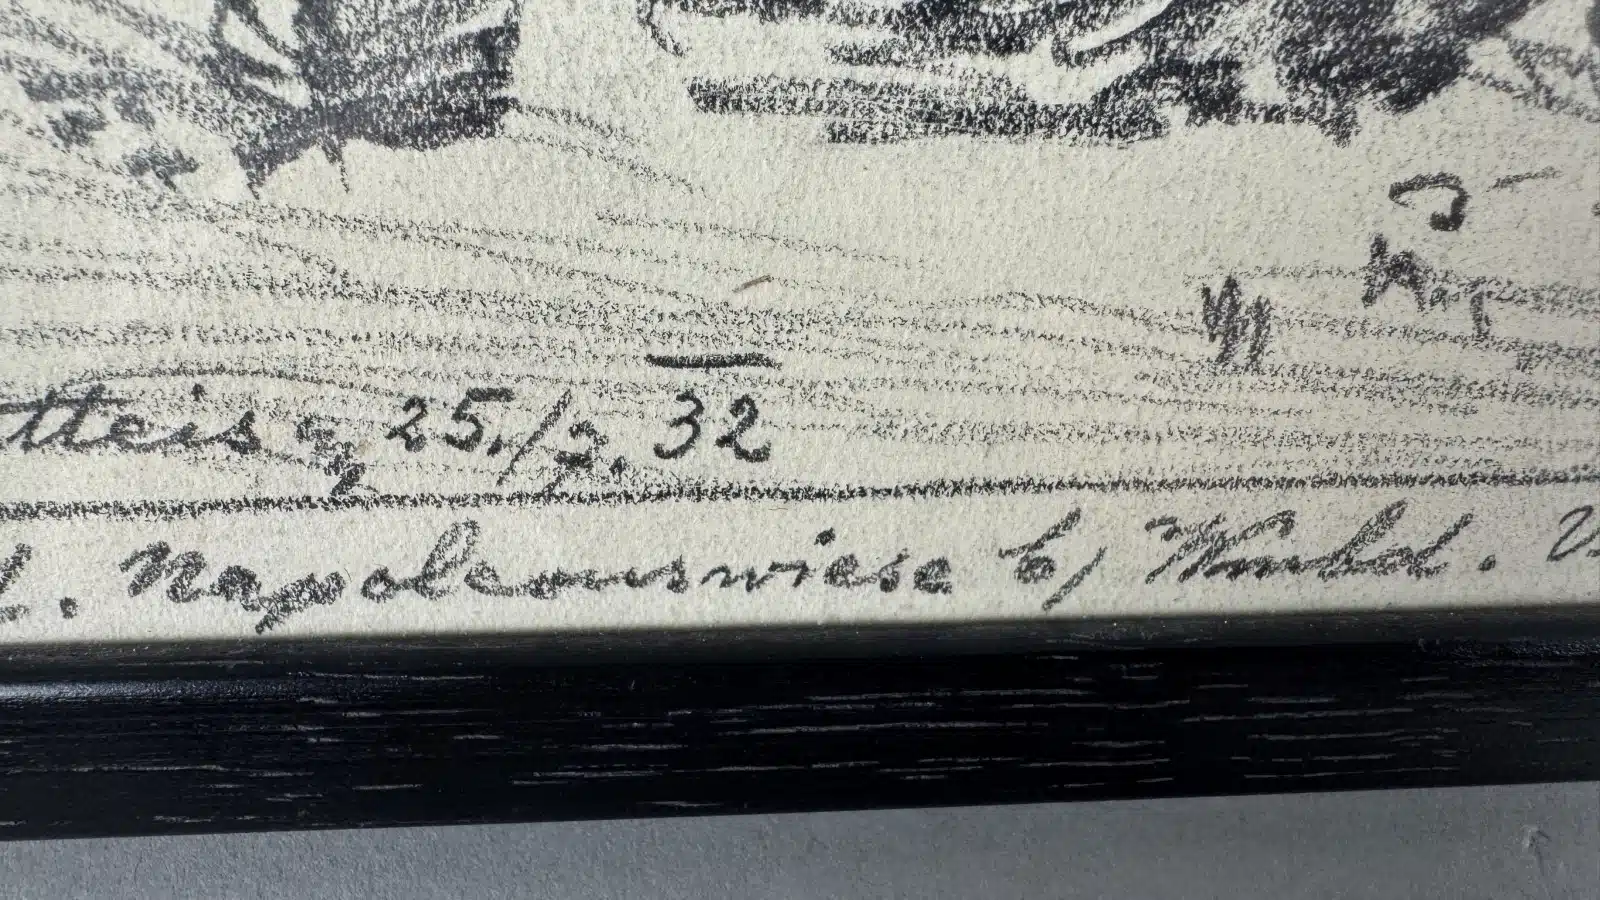 tteis 25./3. 32
. Napoleonswiese b/ Wald.